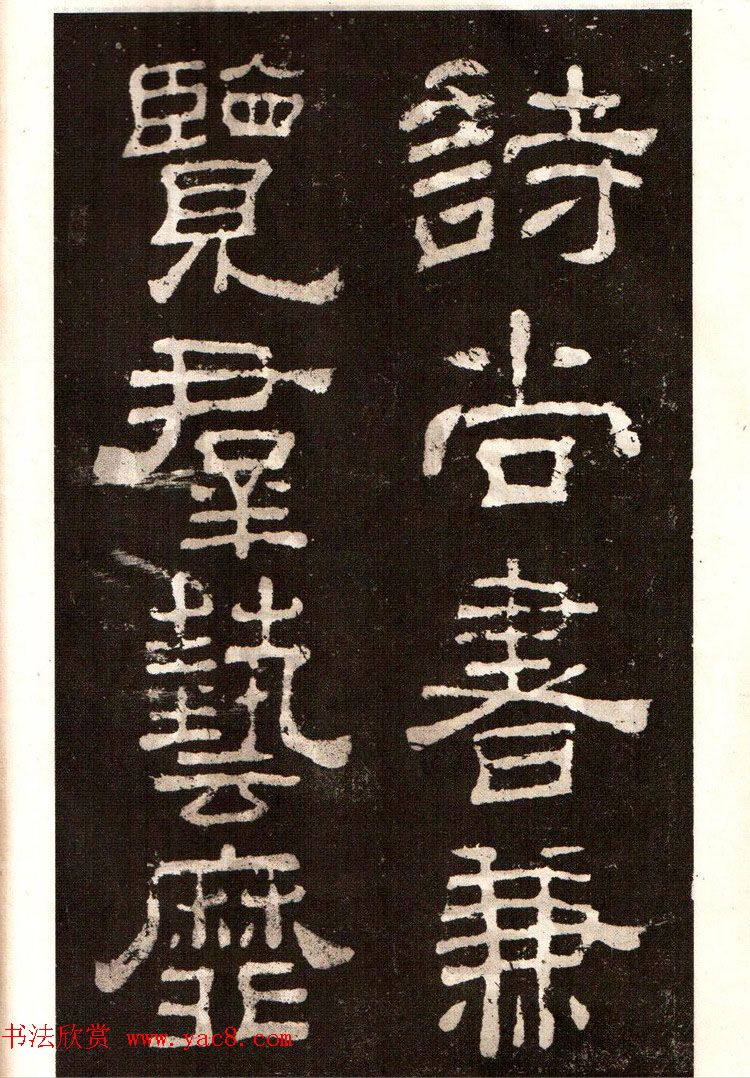 詩尚書兼
覽群藝靡
书法欣赏 www.yac8.com